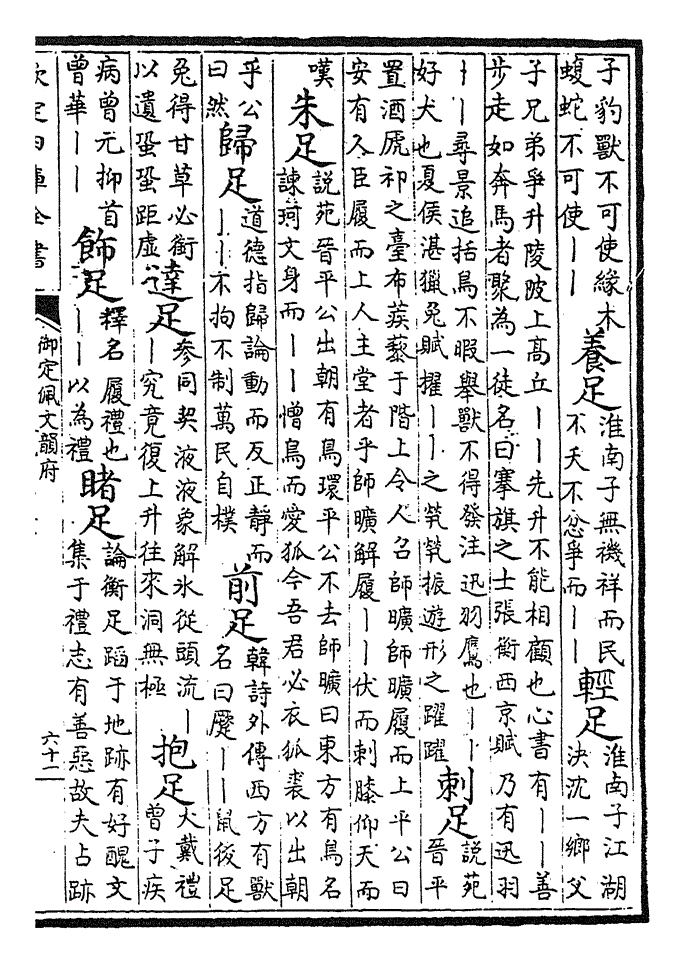 子豹獸不可使緣木
蝮蛇不可使丨丨
養足
淮南子無禨祥而民
不夭不忿爭而丨丨
輕足
淮南子江湖
決沈一鄉父
子兄弟爭升陵阪上高丘丨丨先升不能相顧也心書有丨丨善
步走如奔馬者聚為一徒名曰搴旗之士張衡西京賦 乃有迅羽
丨丨尋景追括鳥不暇舉獸不得發注迅羽鷹也丨丨
好犬也夏侯湛獵兔賦擢丨丨之煢煢振遊形之躍躍
刺足
說苑
晉平
置酒虒祁之臺布蒺藜于階上令人召師曠師曠履而上平公曰
安有人臣履而上人主堂者乎師曠解履丨丨伏而刺膝仰天而
嘆
朱足
說苑晉平公出朝有鳥環平公不去師曠曰東方有鳥名
諫珂文身而丨丨憎鳥而愛狐今吾君必衣狐裘以出朝
乎公
曰然
歸足
道德指歸論動而反正靜而
丨丨不拘不制萬民自樸
前足
韓詩外傳西方有獸
名曰蹷丨丨鼠後足
兔得甘草必銜
以遺蛩蛩距虛
達足
參同契液液象解氷從頭流丨
丨究竟復上升往來洞無極
抱足
大戴禮
曾子疾
病曾元抑首
曾華丨丨
飾足
釋名履禮也
丨丨以為禮
睹足
論衡足蹈于地跡有好醜文
集于禮志有善惡故夫占跡
欽定四庫全書
御定佩文韻府
六十二